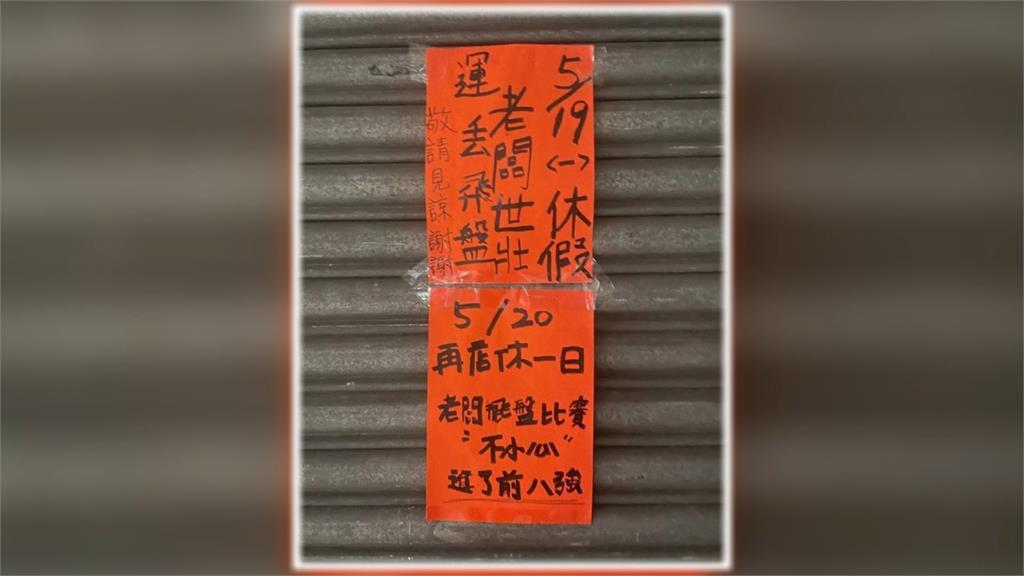 5/19<一>休假
老闆世壯
運丟飛盤
敬請見諒謝謝
5/20
再店休一日
老闆飛盤比賽
"不小心"
進了前八強